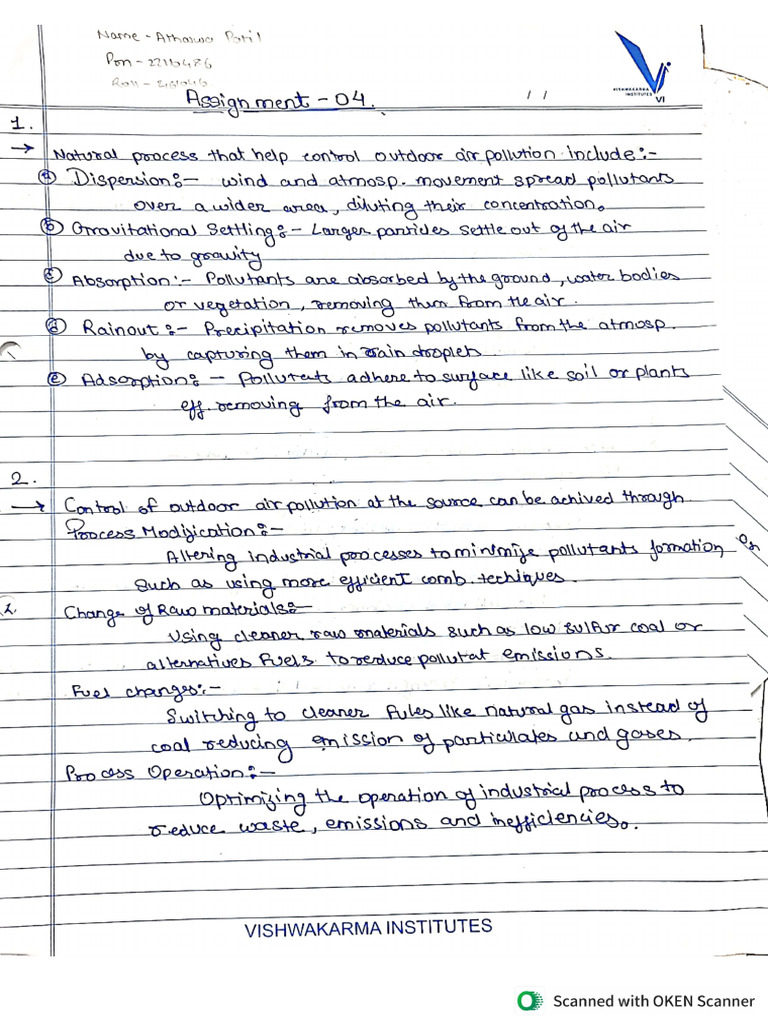 Name - Atharva Patil
Prn - 22110486
Roll -
VISHWAKARMA
INSTITUTES
VI
Assignment - 04.
/ /
1.
→ Natural process that help control outdoor air pollution include:-
ⓐ Dispersion:- wind and atmosp. movement spread pollutants
over a wider area, diluting their concentration.
ⓑ Gravitational Settling:- Larger particles settle out of the air
due to gravity
ⓒ Absorption:- Pollutants are absorbed by the ground, water bodies
or vegetation, removing them from the air.
ⓓ Rainout:- Precipitation removes pollutants from the atmosp.
by capturing them in rain droplets
ⓔ Adsorption:- Pollutents adhere to surface like soil or plants
eff. removing from the air.
2.
→ Control of outdoor air pollution at the source can be achived through
Process Modification:-
Altering industrial processes to minimize pollutants formation
Such as using more efficient comb. techiques.
Change of Raw materials:-
Using cleaner raw materials such as low sulfur coal or
alternatives fuels to reduce pollutat emissions.
Fuel changes:-
Switching to cleaner fules like natural gas instead of
coal reducing emission of particulates and gases.
Process Operation:-
Optimizing the operation of industrial process to
reduce waste, emissions and inefficiencies.
VISHWAKARMA INSTITUTES
Scanned with OKEN Scanner